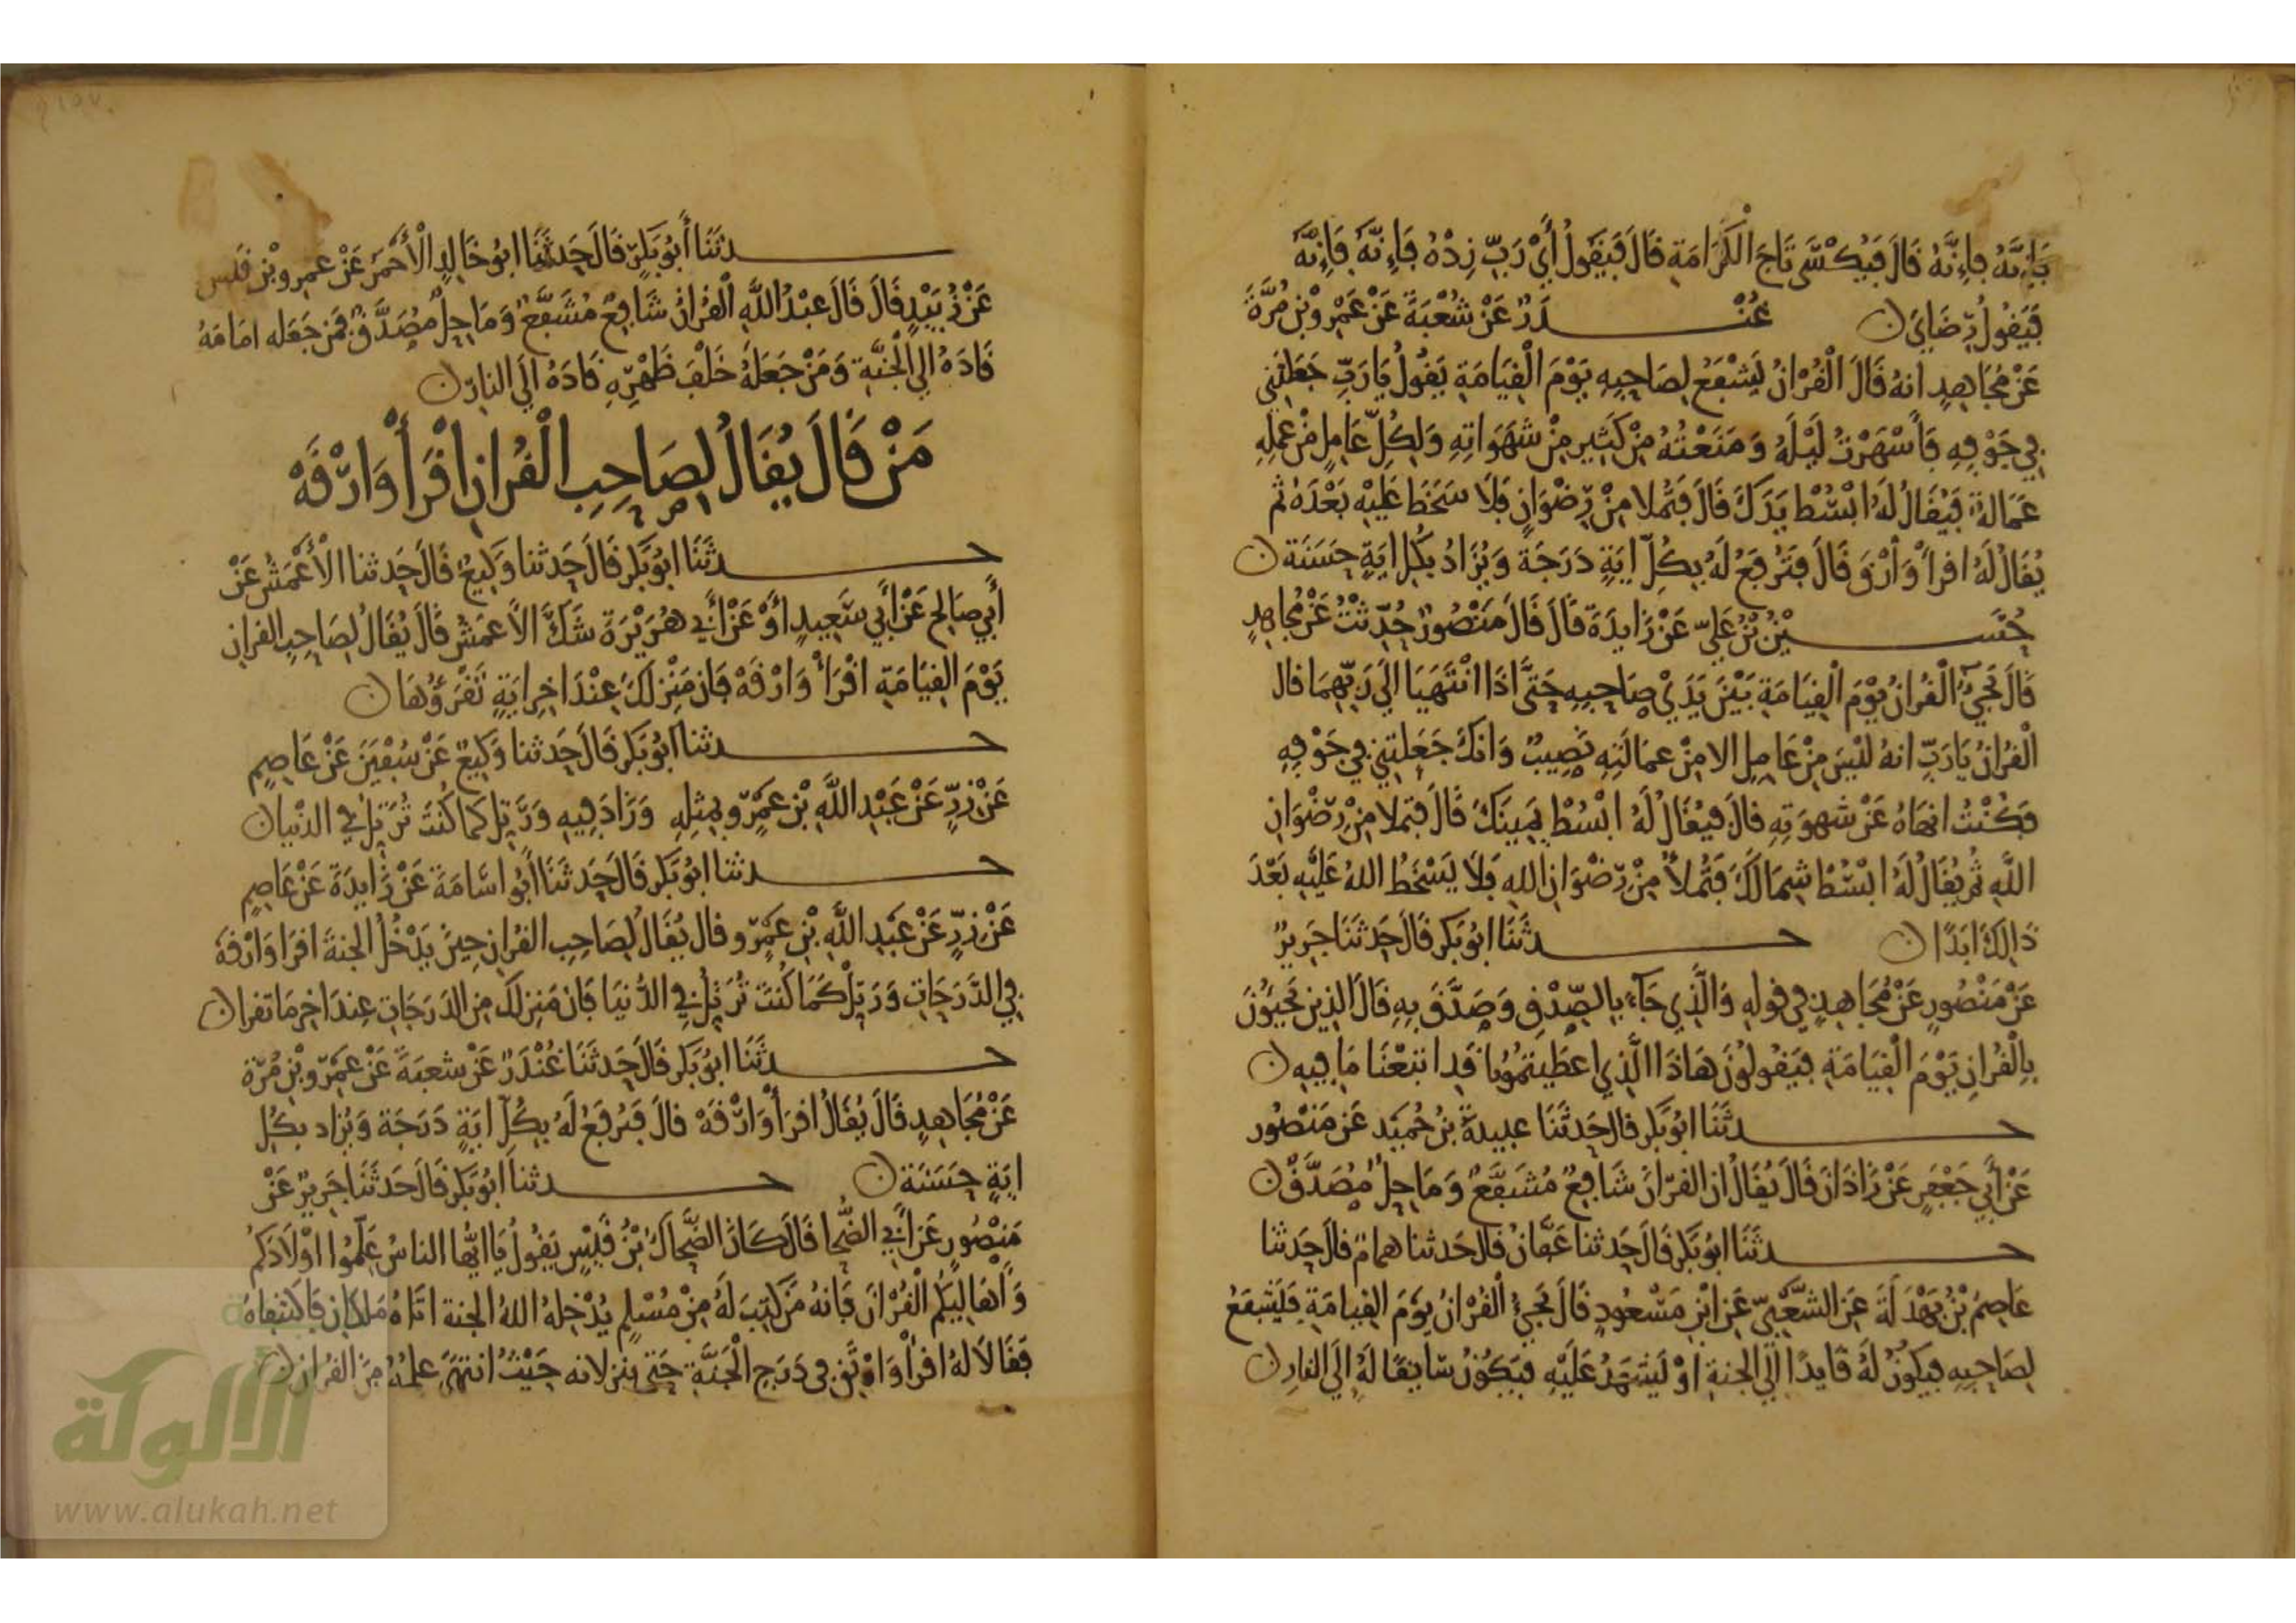 فَإِنَّهُ فَإِنَّهُ قَالَ فَيُكْسَى تَاجَ الْكَرَامَةِ قَالَ فَيَقُولُ أَيْ رَبِّ زِدْهُ فَإِنَّهُ فَإِنَّهُ
فَيَقُولُ رِضَايَ ن غُنْدَرٌ عَنْ شُعْبَةَ عَنْ عَمْرِو بْنِ مُرَّةَ
عَنْ مُجَاهِدٍ انهُ قَالَ الْقُرْانُ يَشْفَعُ لِصَاحِبِهِ يَوْمَ الْقِيَامَةِ يَقُولُ يَا رَبِّ جَعَلْتَنِي
فِي جَوْفِهِ فَأَسْهَرْتُ لَيْلَهُ وَمَنَعْتُهُ مِنْ كَثِيرٍ مِنْ شَهَوَاتِهِ وَلِكُلِّ عَامِلٍ مِنْ عَمَلِهِ
عَمَالَةٌ فَيُقَالُ لَهُ ابْسُطْ يَدَكَ قَالَ فَتُمْلا مِنْ رِّضْوَانٍ فَلَا سَخَطَ عَلَيْهِ بَعْدَهُ ثم
يُقَالُ لَهُ اقرأْ وَأرْقَ قَالَ فَتُرْفَعُ لَهُ بِكُلِّ ايَةٍ دَرَجَة وَيُزَادُ بِكُلِّ ايَةٍ حَسَنَة ن
حُسَيْنُ بْنُ عَلِيّ عَنْ زَايِدَةَ قَالَ قَالَ مَنْصُورٌ حُدِّثْتُ عَنْ مُجَاهِدٍ
قَالَ يَجِيُ الْقُرانُ يَوْمَ الْقِيَامَةِ بَيْنَ يَدَيْ صَاحِبِهِ حَتَّى اذَا انْتَهَيَا الَي رَبِّهِمَا قال
الْقُرانُ يَارَبِّ انهُ لَيْسَ مِنْ عَامِلٍ الا مِنْ عمَالَتِهِ نَصِيبٌ وَانكَ جَعَلْتَنِي فِي جَوْفِهِ
فَكُنْتُ انهَاهُ عَنْ شهوَتِهِ قالَ فَيُقَالُ لَهُ ابْسُطْ يَمِينَكَ قَالَ فتملا مِنْ رِّضْوَانِ
اللَّهِ ثُمَّ يُقَالُ لَهُ ابْسُطْ شِمَالَكَ فَتُمْلأُ مِنْ رِّضْوَانِ اللهِ فَلَا يَسْخَطُ اللهُ عَلَيْهِ بَعْدَ
ذَالِكَ ابَدًا ن حدثَنَا ابُوبَكر قَالَ حَدثَنَا جَرِيرٌ
عَنْ مَنْصُورٍ عَنْ مُجَاهِدٍ فِي قوله وَالَّذِي جَآءَ بِالصِّدْقِ وَصَدَّقَ بِهِ قَالَ الذِين يَجِيؤُنَ
بِالْقُرانِ يَوْمَ الْقِيَامَةِ فَيَقُولُونَ هَاذَا الَّذِي اعطَيتمُونا قَد اتبعْنَا مَا فِيهِ ن
حدثَنَا ابُوبَكر قال حَدثَنَا عبيدةُ بنُ حُمَيْد عَن مَنْصُور
عَنْ أَبِي جَعْفَرٍ عَنْ زَاذَانَ قَالَ يُقَالُ ان القرْانَ شَافِعٌ مُشَفَّعٌ وَمَاحِلٌ مُصَدَّقٌ ن
حدثَنَا ابُوبَكر قَالَ حَدثنا عَفَّانُ قال حَدثنا همامٌ قالَ حَدثنا
عَاصِمُ بْنُ بَهْدَلَةَ عَنِ الشَّعْبِيّ عَنِ ابْنِ مَسْعُودٍ قَالَ يَجِيُ الْقُرْانُ يَوَمَ القِيامَةِ فَيَشفَعُ
لِصَاحِبِهِ فيكونُ لَهُ قَايدًا الَي الجنةِ اوْ يَشهَدُ عَلَيْهِ فيَكُونُ سَايِقًا لهُ الَي النارِ ن
حدثَنَا أَبُوبَكر قَالَ حَدثَنَا ابُو خَالِدٍ الْأَحْمَرُ عَنْ عَمرِو بْنِ قَيس
عَنْ زُبَيْدٍ قَالَ قَالَ عبْدُ اللَّهِ الْقُرانُ شَافِعٌ مُشَفَّعٌ وَمَاحِلٌ مُصَدَّقٌ فَمَن جَعَله امَامَهُ
قَادَهُ الَي الْجَنَّةِ وَمَنْ جَعَلَهُ خَلْفَ ظَهْرِهِ قَادَهُ الَي النارِ ن
مَنْ قَالَ يُقَالُ لِصَاحِبِ الْقُرانِ اقْرَأْ وَارْقَهْ
حدثَنَا ابُوبَكر قَالَ حَدثنا وَكِيعٌ قَالَ حَدثنا الْأَعْمَشُ عَنْ
أَبِي صَالِح عَنْ أَبِي سَعِيدٍ أَوْ عَنْ أَبِي هُرَيْرَة شَكَّ الأَعمَشُ قَالَ يُقَالُ لِصَاحِبِ القرانِ
يَوْمَ القِيَامَةِ اقْرَأْ وَارْقَهْ فَان مَنْزِلَكَ عِنْدَ اخِرِ ايَةٍ تَقْرَؤُهَا ن
حدثنا ابُوبَكر قَالَ حَدثنا وَكِيعٌ عَنْ سُفْيَنَ عَنْ عَاصِمٍ
عَنْ زِرٍّ عَنْ عَبْدِ اللَّهِ بْنِ عَمْرٍو بِمِثلِهِ وَزَادَ فِيهِ وَرَتِّل كمَا كُنْتَ تُرَتِّلُ فِي الدنْيا ن
حدثنا ابُوبَكر قَالَ حَدثَنَا أَبُو اسَّامَةَ عَنْ زَايِدَةَ عَنْ عَاصِمٍ
عَنْ زِرٍّ عَنْ عَبْدِ اللَّهِ بْنِ عَمْرٍو قال يُقَالُ لِصَاحِبِ القرانِ حِينَ يَدْخُلُ الجنةَ اقرَا وَارْقَهْ
فِي الدَّرَجَاتِ وَرَتِّلْ كَمَا كُنْتَ تُرَتِّلُ فِي الدُّنيَا فَان مَنزِلَكَ مِن الدَرَجَاتِ عِندَ اخِرِ مَا تقرا ن
حدثَنَا ابُوبَكر قَالَ حَدثَنَا غُنْدَرٌ عَنْ شعبَةَ عَنْ عَمْرِو بْنِ مُرَّة
عَنْ مُجَاهِدٍ قَالَ يُقَالُ اقرَأْ وَارْقَهْ قالَ فَتُرفَعُ لَهُ بِكُلِّ ايَةٍ دَرَجَة وَيُزاد بكُلِ
ايَةٍ حَسَنَة ن حدثنا ابُوبَكر قَالَ حَدثَنَا جَرِيرٌ عَنْ
مَنْصُورٍ عَن أَبِي الضُّحَا قَالَ كَانَ الضَّحَاكُ بْنُ قَيْسٍ يَقُولُ يَا ايُّهَا الناسُ عَلِّمُوا اوْلَادَكُمُ
وَأَهَالِيكُمُ الْقُرْانَ فَانهُ مَن كُتِبَ لَهُ مِنْ مُسْلِمٍ يُدْخِلهُ اللهُ الجنة اتَاهُ مَلكانِ فَاكتنفاهُ
فَقَالَا لهُ اقرأْ وَارْتَقِ فِي دَرَجِ الْجَنَّةِ حَتى ينزلانه حَيْثُ انتهَى علمُهُ مِنَ القُرانِ ن
الألوكة
www.alukah.net